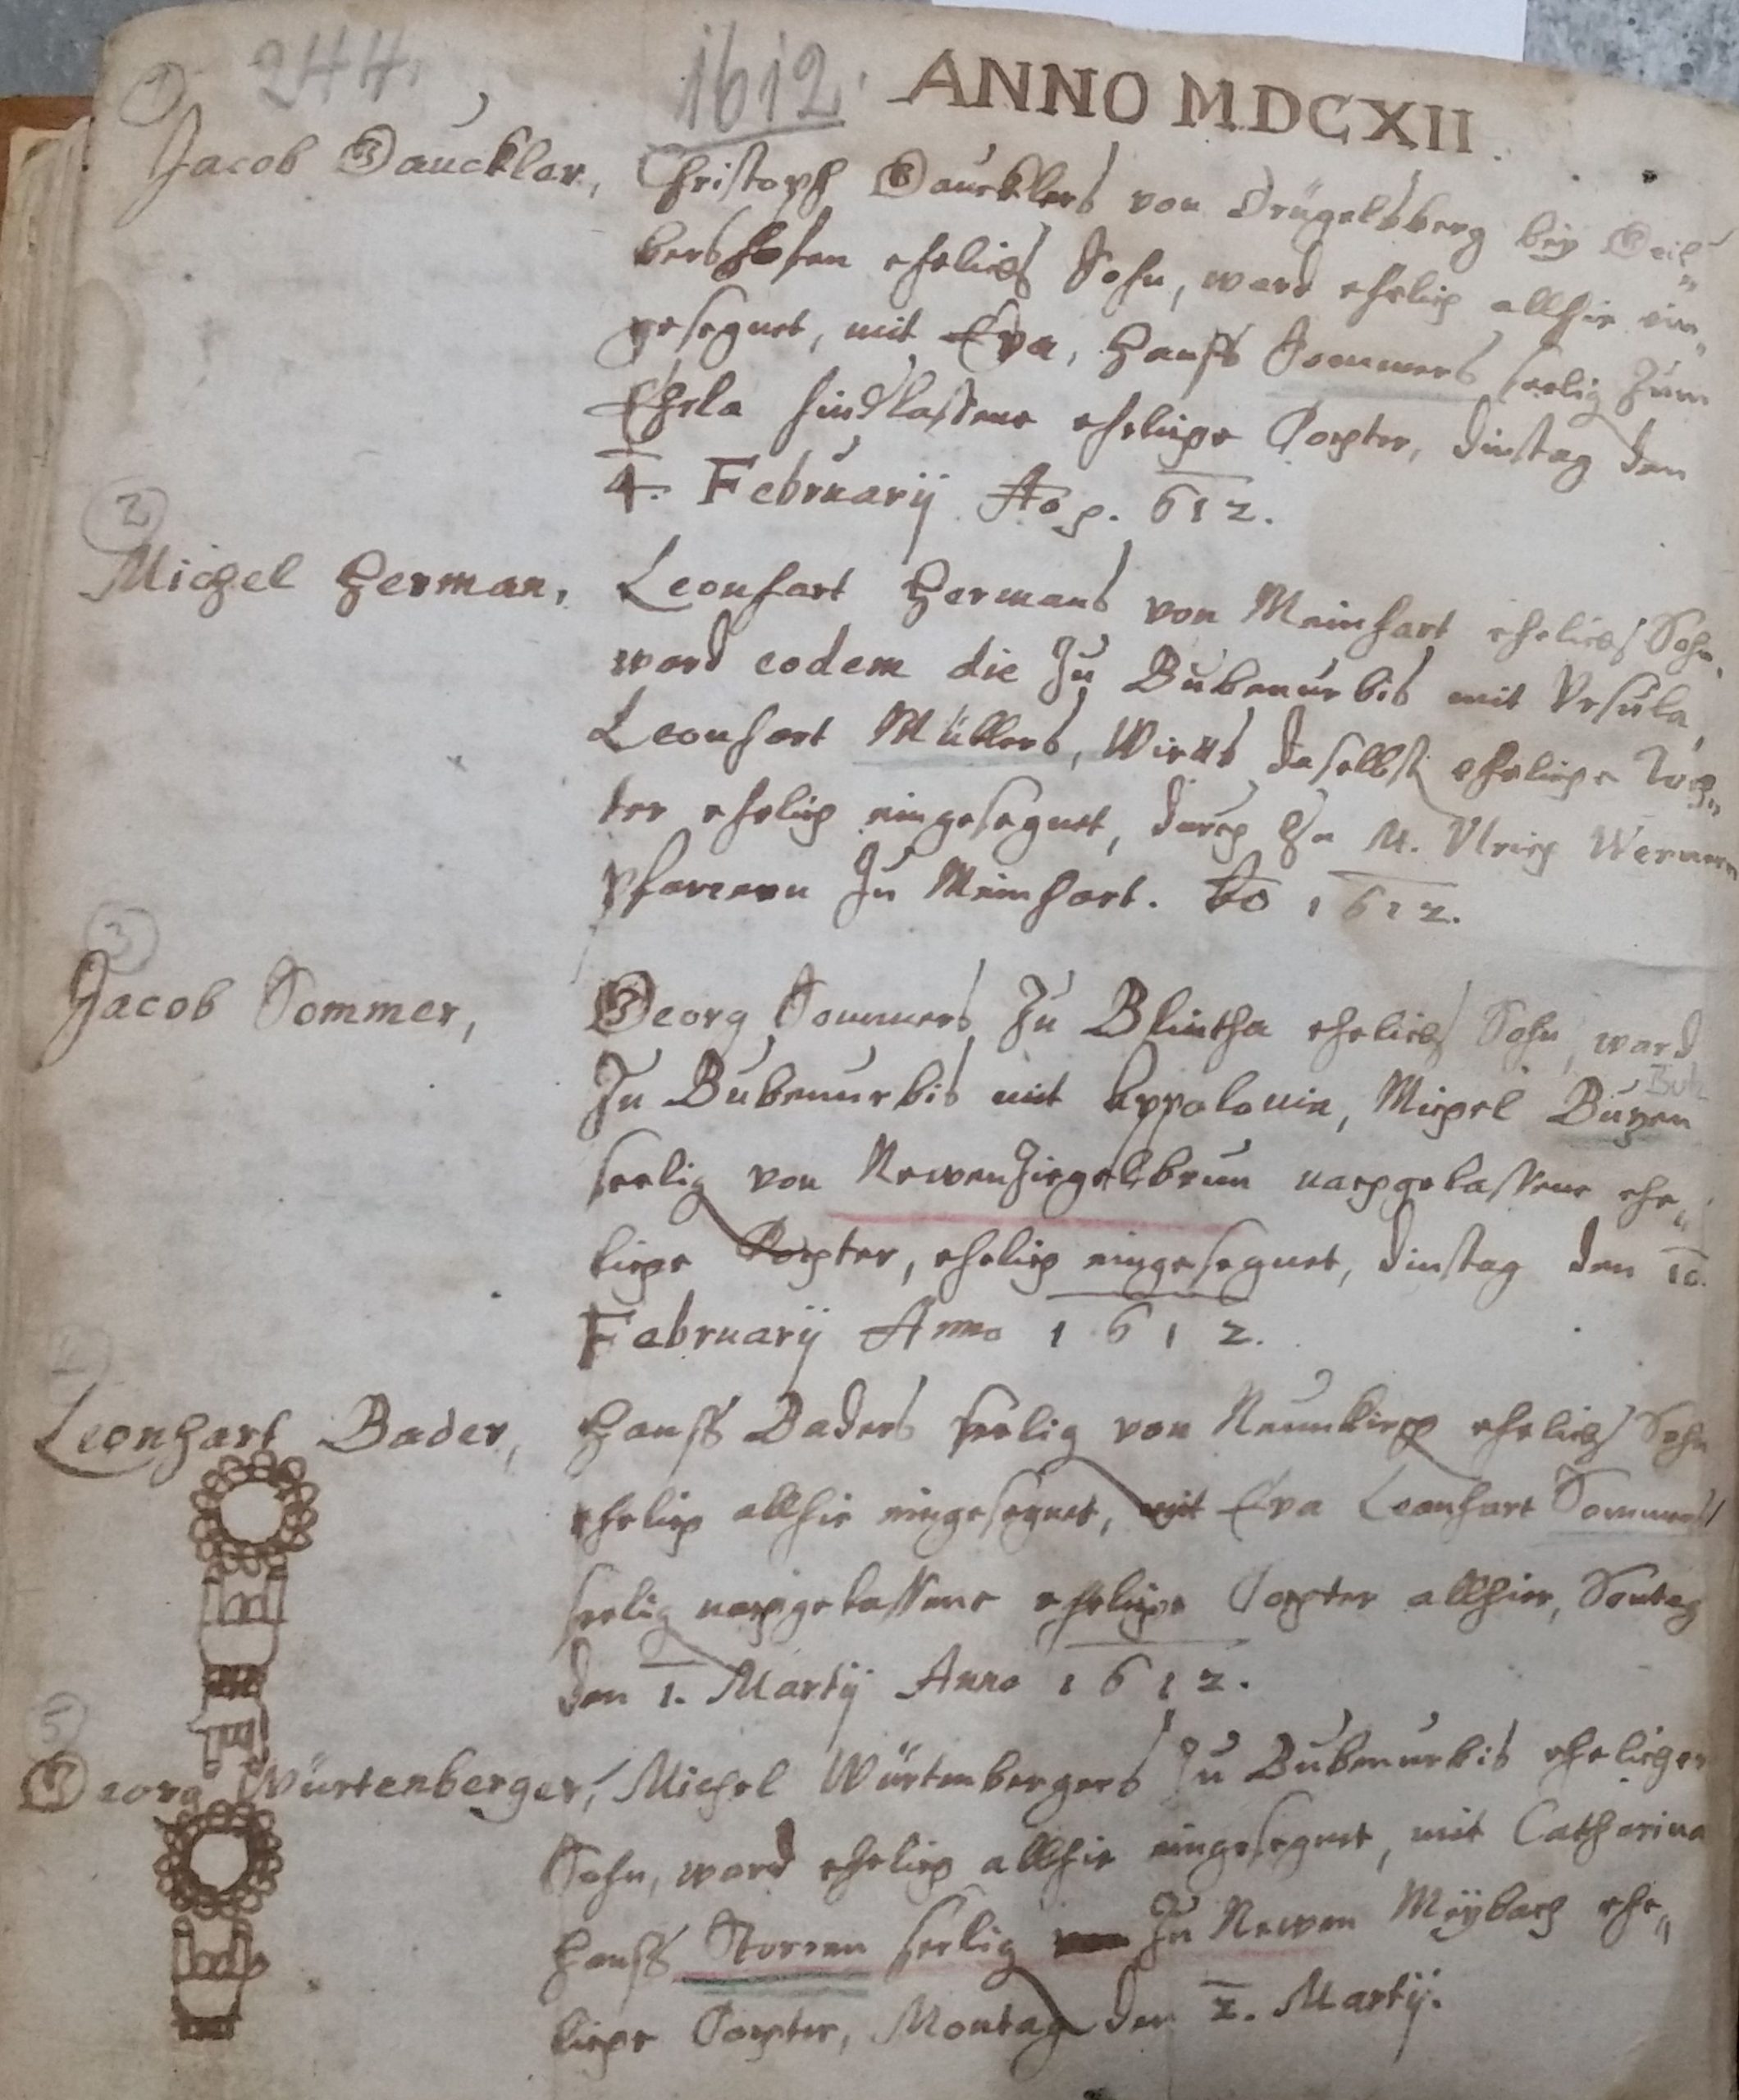 244.
1612.
ANNO MDCXII.
1
Jacob Gauckler, Christoph Gaucklers von Brügelsberg bey Geil„
bershofen ehelicher Sohn, ward ehelich allhie ein„
gesegnet, mit Eva, Hanß Sommers seelig zum
Ehrla hindlassene eheliche Tochter, Dinstag den
4. Februarij Ao p. 612.
2
Michel Herman, Leonhart Hermans von Meinhart ehelicher Sohn,
ward eodem die Zu Bubenurbis mit Ursula,
Leonhart Müllers, Wirtts daselbst eheliche Toch„
ter ehelich eingesegnet, durch Hn M. Ulrich Wernern
Pfarrern Zu Meinhart. Ao 1612.
3
Jacob Sommer, Georg Sommers Zu Blintha ehelicher Sohn, ward
Zu Bubenurbis mit Appolonia, Michel Buzen
seelig von Newenziegelbrun nachgelassene ehe„
liche Tochter, ehelich eingesegnet, Dinstag den 10.
Februarij Anno 1612.
4
Leonhart Bader, Hanß Baders seelig von Neunkirch ehelicher Sohn
ehelich allhie eingesegnet, mit Eva Leonhart Sommers
seelig nachgelassene eheliche Tochter allhier, Sontag
den 1. Martij Anno 1612.
5
Georg Würtenberger, Michel Würtenbergers Zu Bubenurbis ehelicher
Sohn, ward ehelich allhie eingesegnet, mit Catharina
Hanß Storren seelig Zu Newen Meybach ehe„
liche Tochter, Montag den 2. Martij.